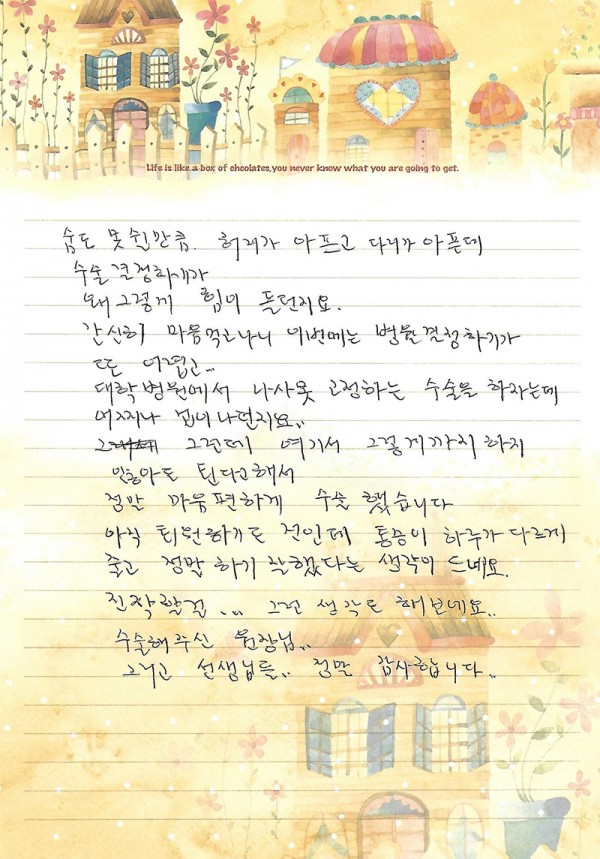 Life is like a box of chocolates, you never know what you are going to get.
숨도 못쉴만큼. 허리가 아프고 다리가 아픈데
수술 결정하기가
왜 그렇게 힘이 들던지요.
간신히 마음먹고나니 이번에는 병원결정하기가
또 어렵고..
대학병원에서 나사못 고정하는 수술을 하자는데
어찌나 겁이나던지요..
그런데 여기서 그렇게까지 하지
않아도 된다고해서
정말 마음편하게 수술 했습니다
아직 퇴원하기도 전인데 통증이 하루가 다르게
줄고 정말 하기 잘했다는 생각이 드네요.
진작할걸 ... 그런 생각도 해보네요..
수술해주신 원장님..
그리고 선생님들.. 정말 감사합니다..